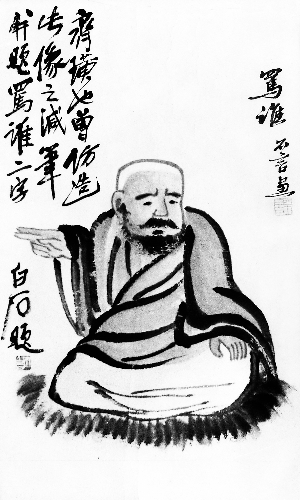 罵誰
不言畫
齊璜也曾仿造
此像之減筆
并題罵誰二字
白石題